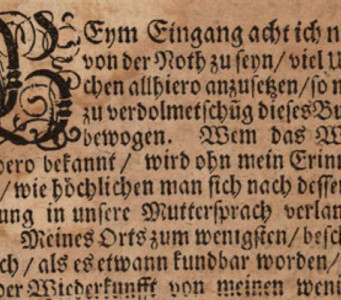 BEym Eingang acht ich n
von der Noth zu seyn/ viel U
chen allhiero anzusetzen/ so m
zu verdolmetschũg dieses Bu
bewogen. Wem das W
hero bekannt/ wird ohn mein Erinn
/ wie höchlichen man sich nach dessen
ung in unsere Muttersprach verlan
Meines Orts zum wenigsten/ besch
ch/ als es etwann kundbar worden/
der Wiederkunfft von meinen weni